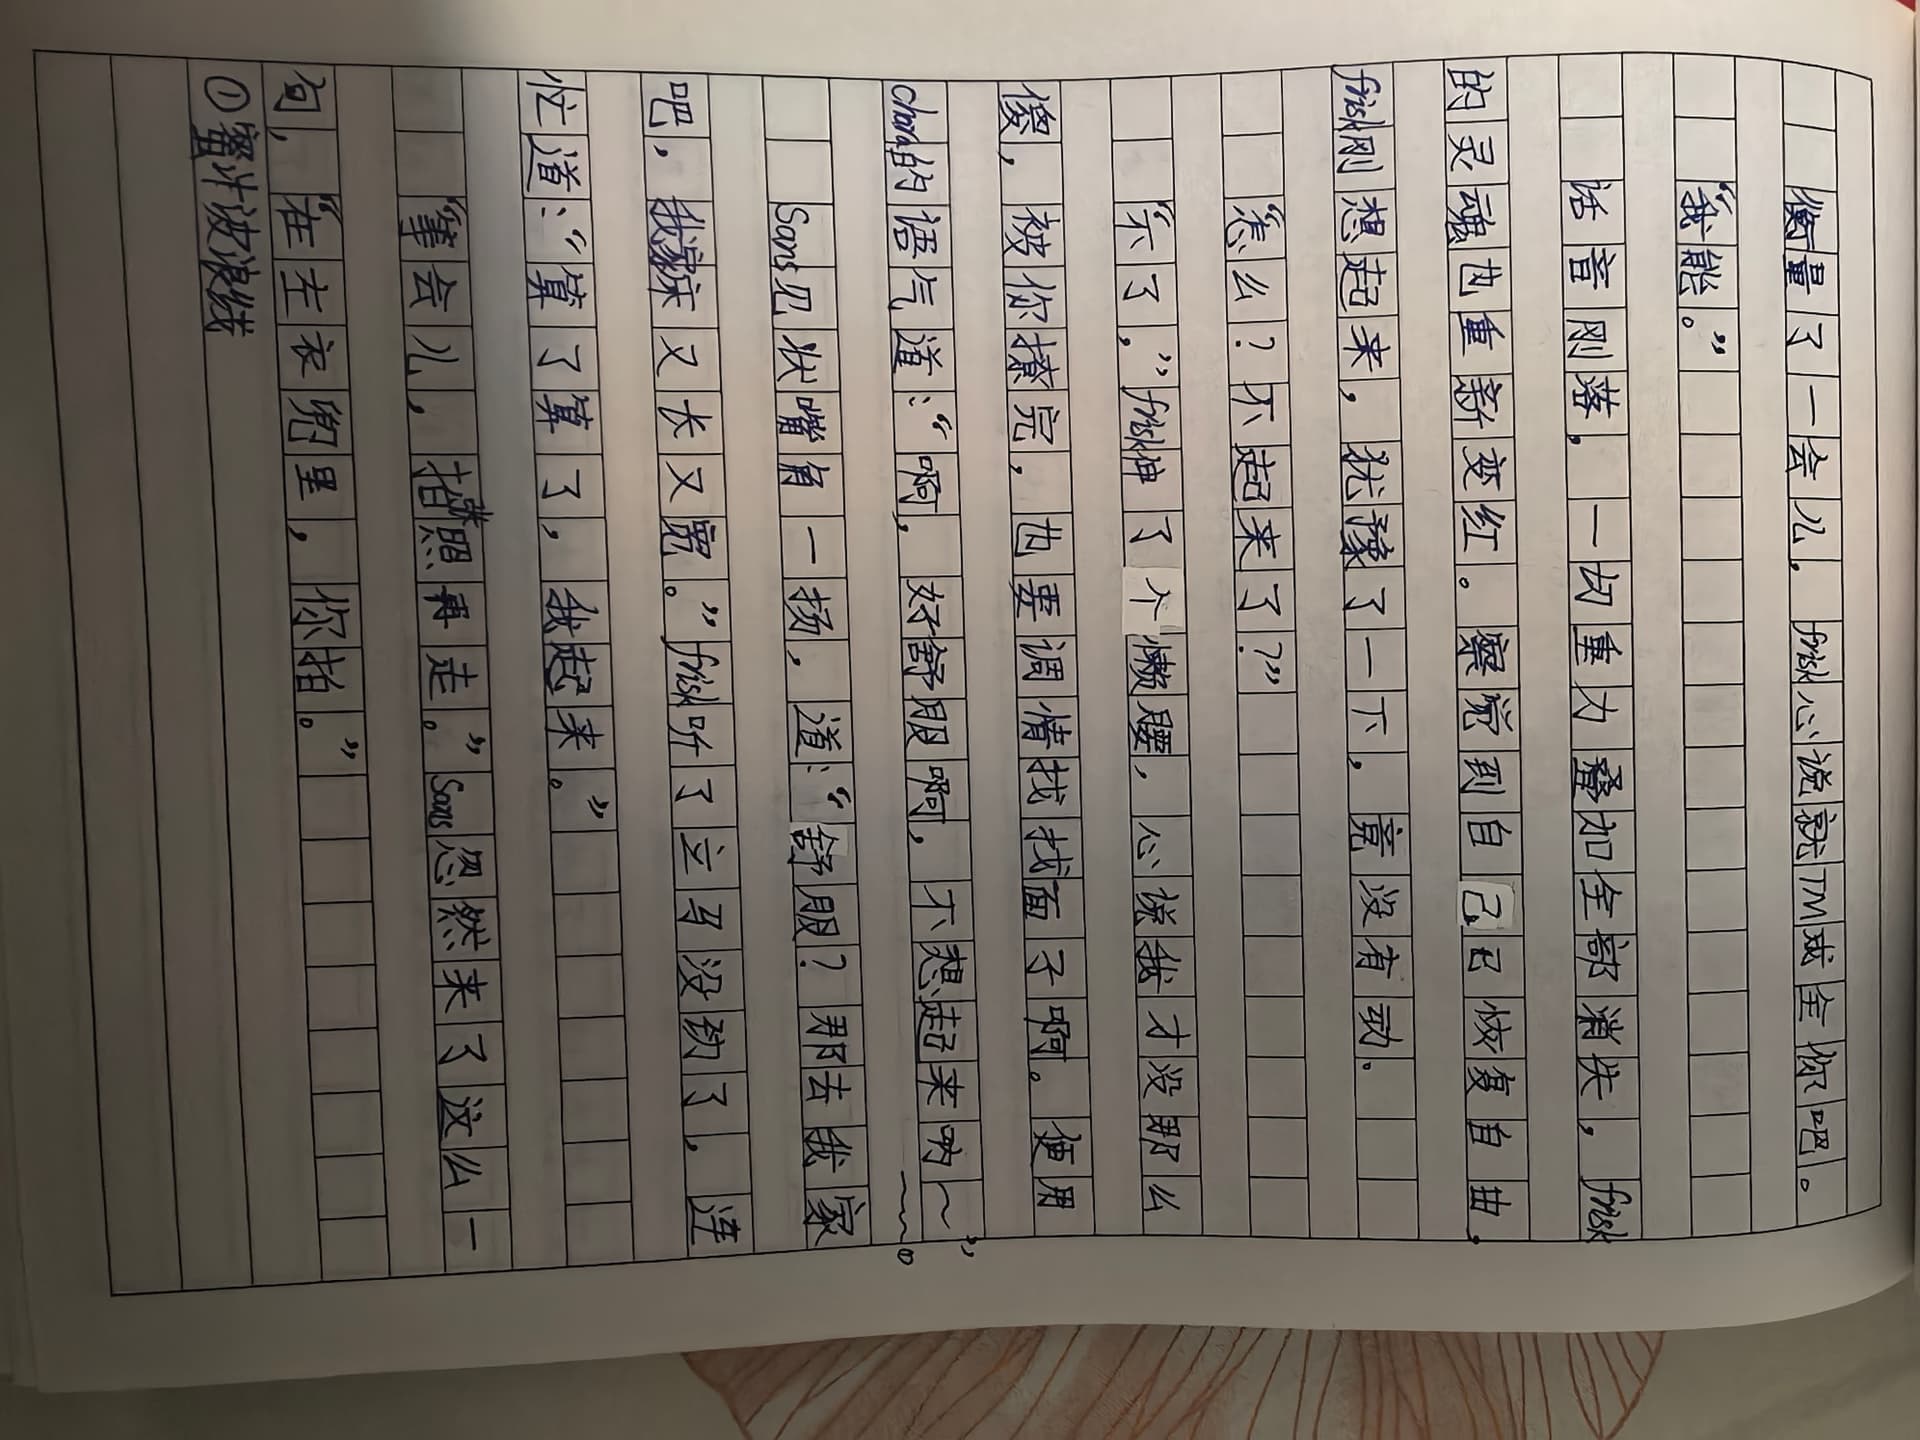 衡量了一会儿，frisk心说就TM成全你吧。
“我能。”
话音刚落，一切重力叠加全部消失，frisk
的灵魂也重新变红。察觉到自己已恢复自由，
frisk刚想起来，犹豫了一下，竟没有动。
“怎么？不起来了？”
“不了，”frisk伸了个懒腰，心说我才没那么
傻，被你撩完，也要调情找找面子啊。便用
chara的语气道：“啊，好舒服啊，不想起来呐~”
~~~。
Sans见状嘴角一扬，道：“舒服？那去我家
吧，我家床又长又宽。”frisk听了立马没劲了，连
忙道：“算了算了，我起来。”
“等会儿，拍张照再走。”Sans忽然来了这么一
句，“在左衣兜里，你拍。”
①蜜汁波浪线